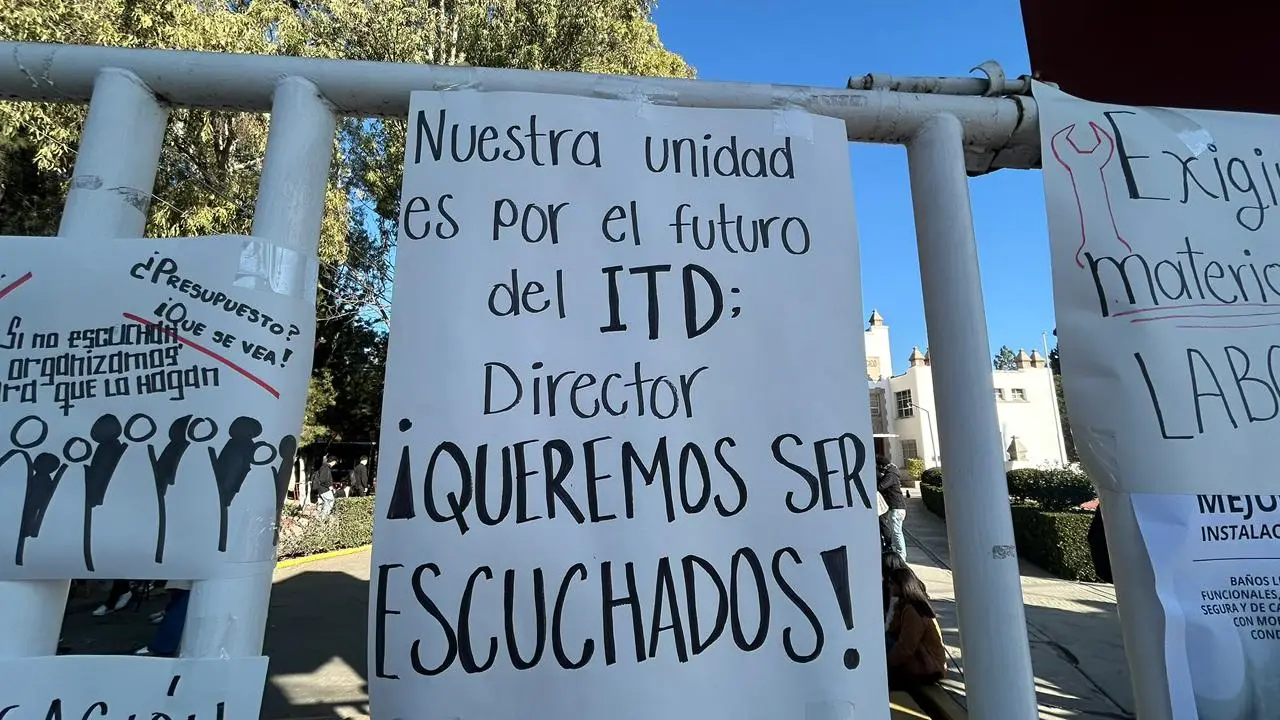 ¿Presupuesto?
¡Que se vea!
Si no escuchan
organizamos
que lo hagan
Nuestra unidad
es por el futuro
del ITD;
Director
¡QUEREMOS SER
ESCUCHADOS!
MEJO
INSTALAC
BAÑOS
FUNCIONALES,
SEGURA Y DE CA
CON MO